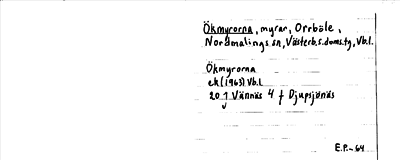 Ökmyrorna, myrar, Orrböle,
Nordmalings sn, Västerb.s.doms.tg, Vb.l.
Ökmyrorna
ek (1963) Vb.l
20 J Vännäs 4 f Djupsjönäs
E.P.-64